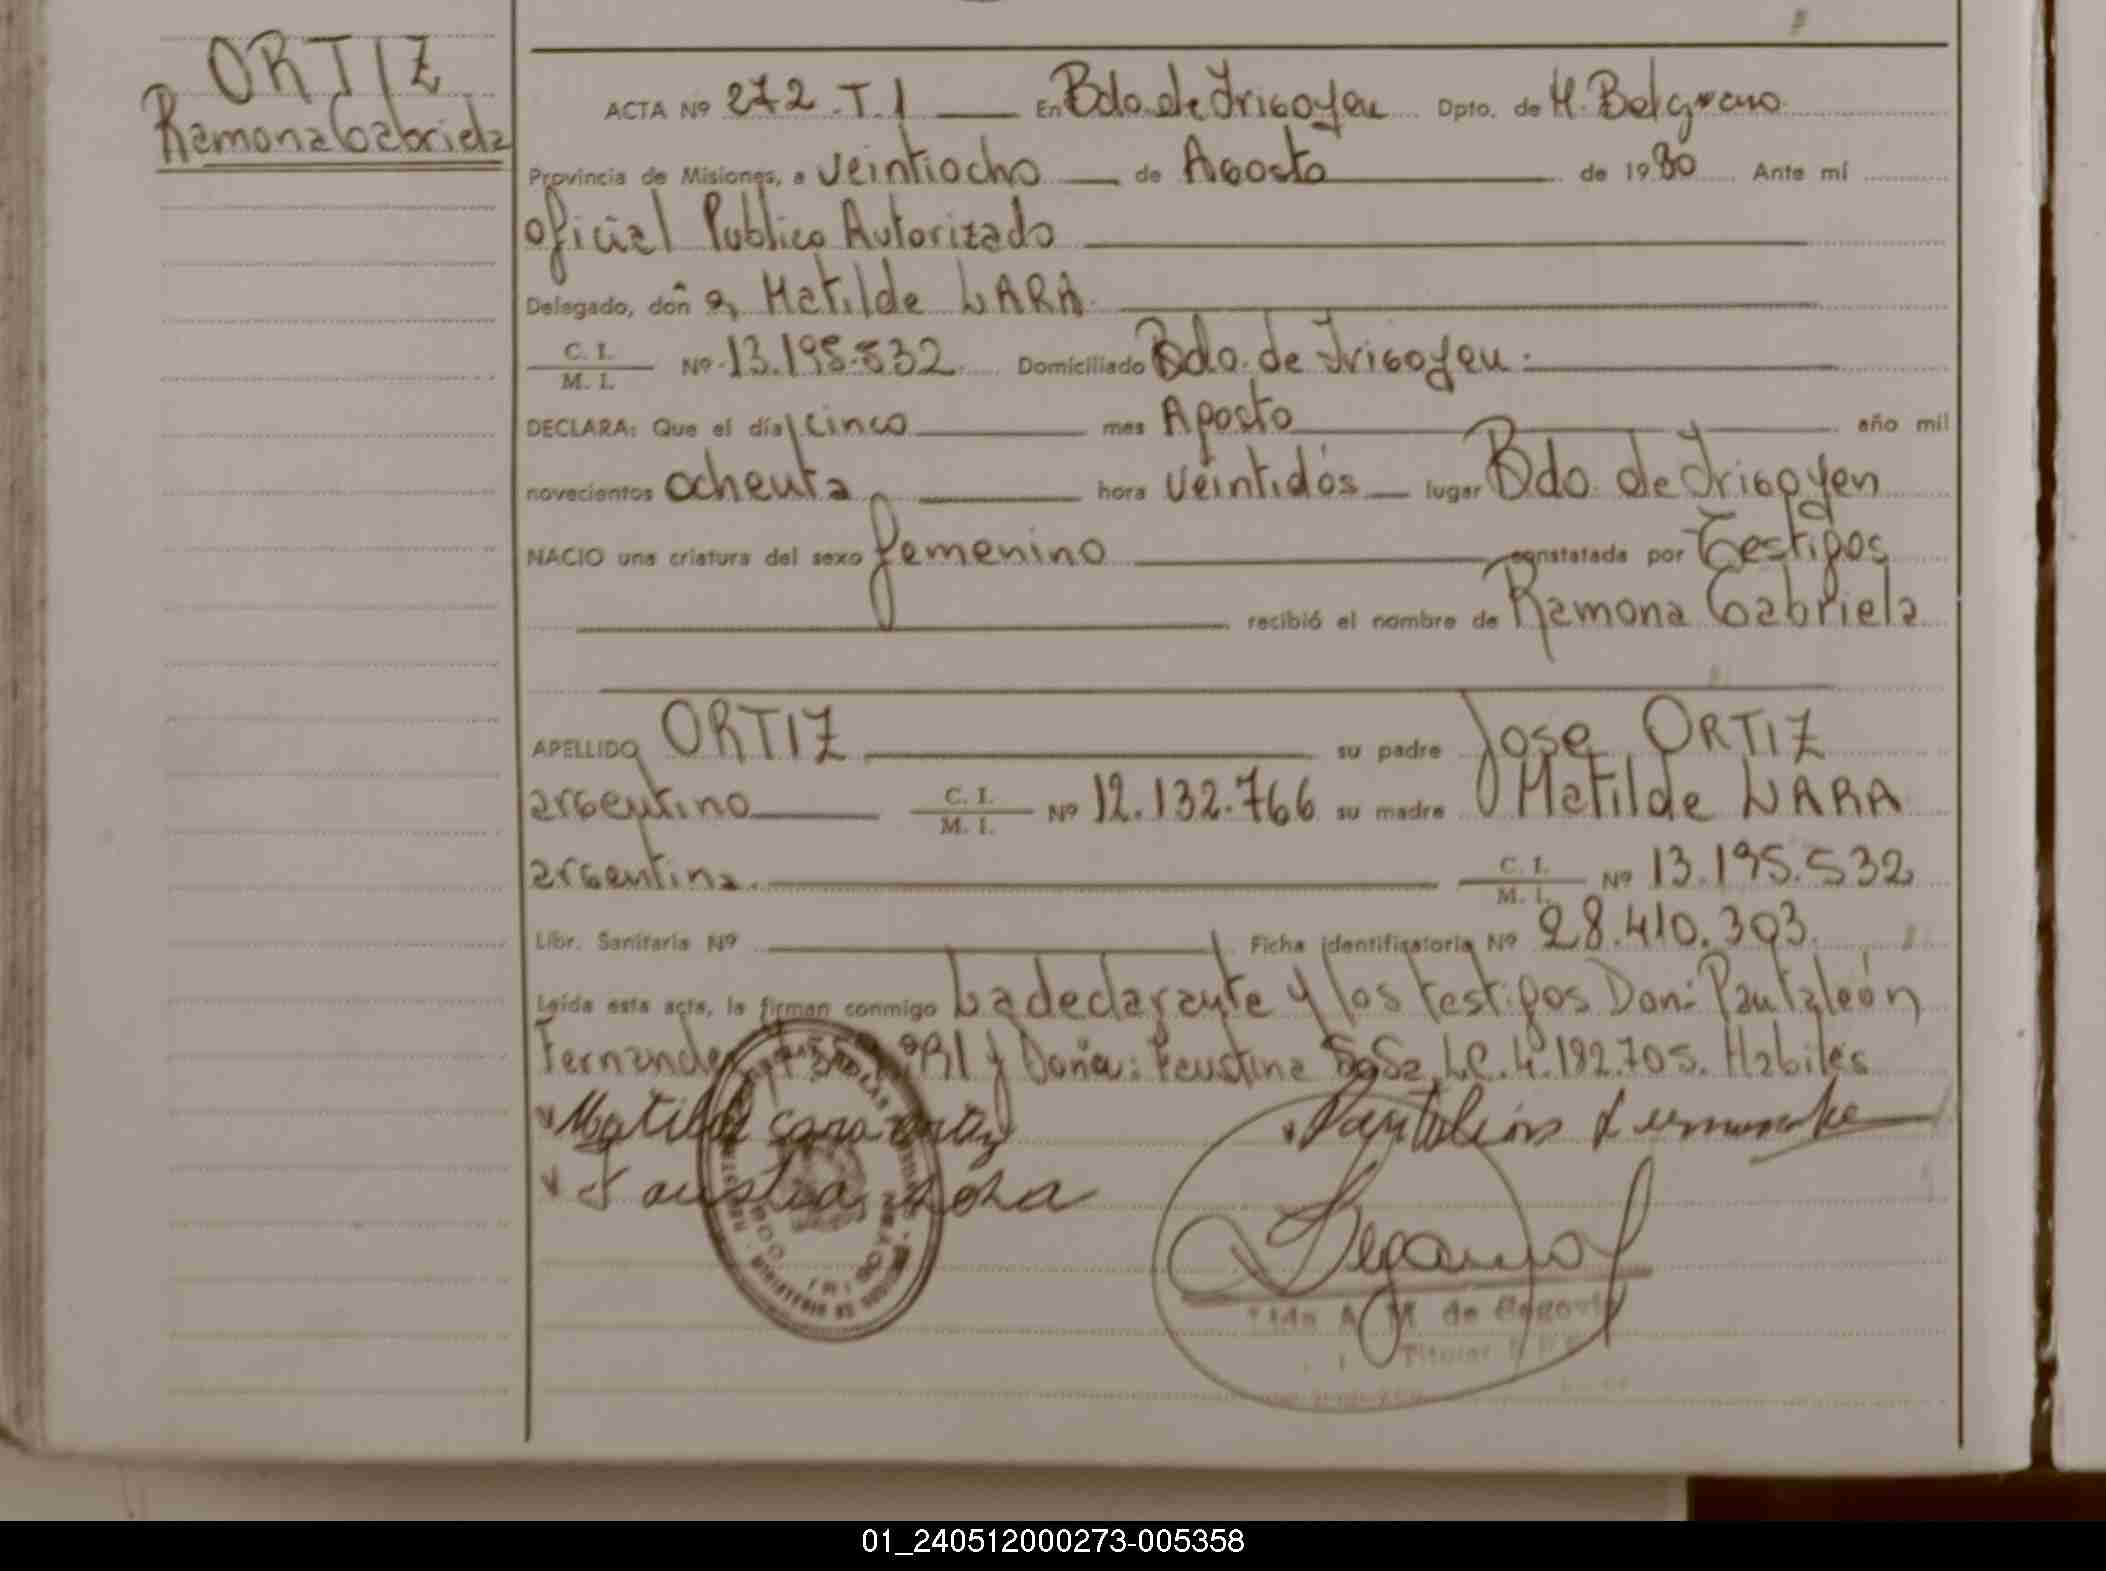 ORTIZ
Ramona Gabriela
ACTA Nº 272.T.1 En Bdo. de Irigoyen Dpto. de M. Belgrano
Provincia de Misiones, a veintiocho de Agosto de 1980 Ante mí
oficial Publico Autorizado
Delegado, doñ a, Matilde LARA
C. I.
M. I. Nº 13.195.532 Domiciliado Bdo. de Irigoyen.
DECLARA: Que el día cinco mes Agosto año mil
novecientos ochenta hora veintidós lugar Bdo. de Irigoyen
NACIO una criatura del sexo femenino constatada por Testigos
recibió el nombre de Ramona Gabriela
APELLIDO ORTIZ su padre Jose ORTIZ
argentino C. I. M. I. Nº 12.132.766 su madre Matilde LARA
argentina. C. I. M. I. Nº 13.195.532
Libr. Sanitaria Nº Ficha identificatoria Nº 28.410.303.
Leída esta acta, la firman conmigo La declarante y los testigos Don: Pantaleón
Fernandez y Doña: Faustina Sosa L.C. 4.192.705. Habiles
Matilde Lara Ortiz Pantaleón
Faustina Sosa
A M de Segovia
Titular